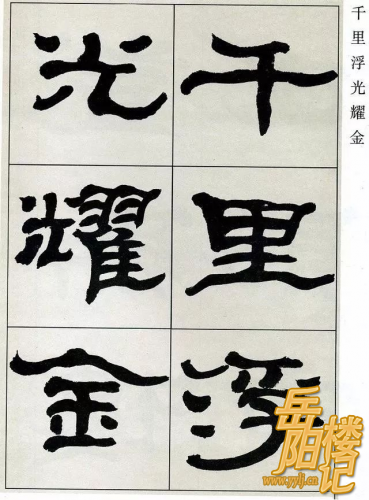 千里浮光耀金
千里浮
光耀金
岳阳楼记
www.yylj.cn